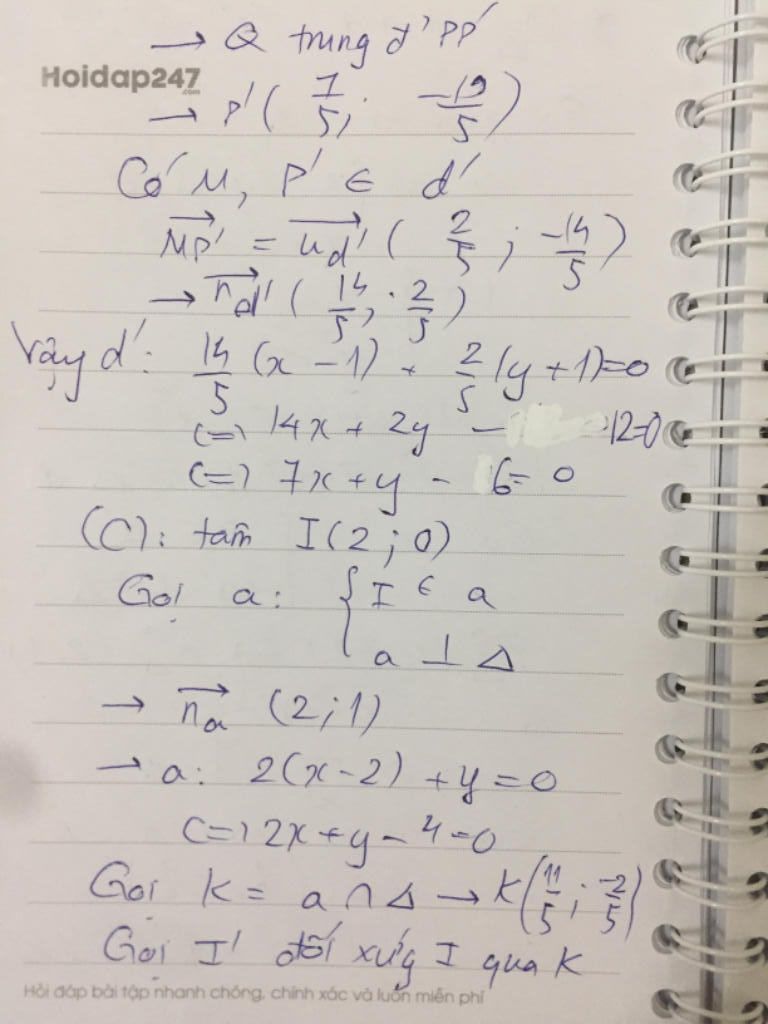 → Q trung đ' PP'
Hoidap247
.com
→ P' ( 7/5 ; -19/5 )
Có M, P' ∈ d'
MP'→ = u_d'→ ( 2/5 ; -14/5 )
→ n_d'→ ( 14/5 ; 2/5 )
Vậy d': 14/5 (x - 1) + 2/5 (y + 1) = 0
(=) 14x + 2y - 12 = 0
(=) 7x + y - 6 = 0
(C): tâm I (2 ; 0)
Gọi a: { I ∈ a
a ⊥ Δ
→ n_a→ (2 ; 1)
→ a: 2(x - 2) + y = 0
(=) 2x + y - 4 = 0
Gọi K = a ∩ Δ → K ( 11/5 ; -2/5 )
Gọi I' đối xứg I qua K
Hỏi đáp bài tập nhanh chóng, chính xác và luôn miễn phí